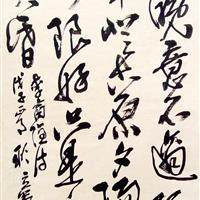 晚意不適
登古原夕陽
限好只是
昏
李商隱詩
戊子